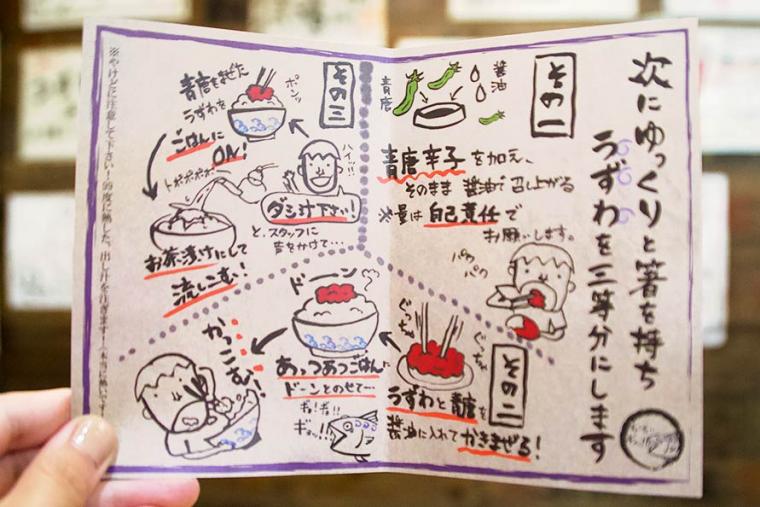 次にゆっくりと箸を持ち
うずわを三等分にします
その一
醤油
青唐
青唐辛子を加え、
そのまま醤油で召し上がる
※量は自己責任で
お願いします。
パク
パク
その二
ぐっちゃ
ぐっちゃ
うずわと青唐を
醤油に入れてかきまぜる!
ドーン
あっつあつごはんに
ドーンとのせて…
ギョ!ギョ!!
ギョッ!!
かっこむ!
その三
青唐をまぜた
うずわを
ポンッ
ごはんに
ON!
ハイッ!!
ダシ汁下さい!
と、スタッフに
声をかけて…
トポポポポ
お茶漬けにして
流しこむ!
※やけどに注意して下さい!99度に熱した、出し汁を注ぎます!(本当に熱いです